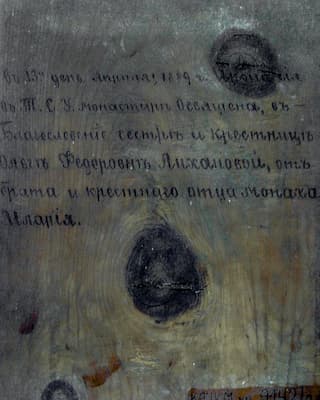 въ 13й день Апрѣля, 1889 г. Икона сія
въ Т. С. У. монастырѣ Освящена, въ –
Благословеніе сестрѣ и крестницѣ
Ольгѣ Ѳедоровнѣ Лихановой, отъ
брата и крестнаго отца монаха
Иларія.